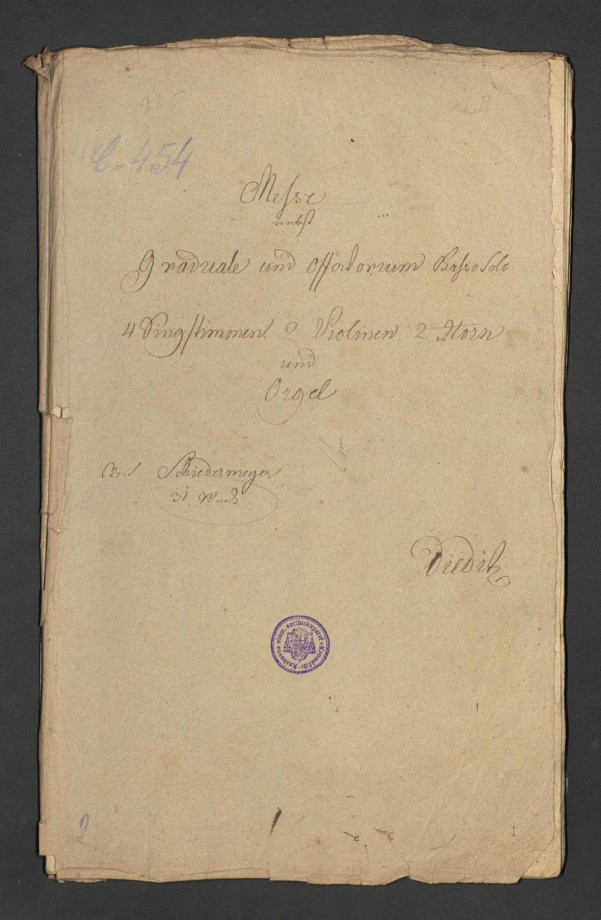 N 6
C-454
Messe
nebst
Graduale und Offertorium Basso Solo
4 Singstimmen 2 Violinen 2 Horn
und
Orgel
Schiedermeyer
31
9